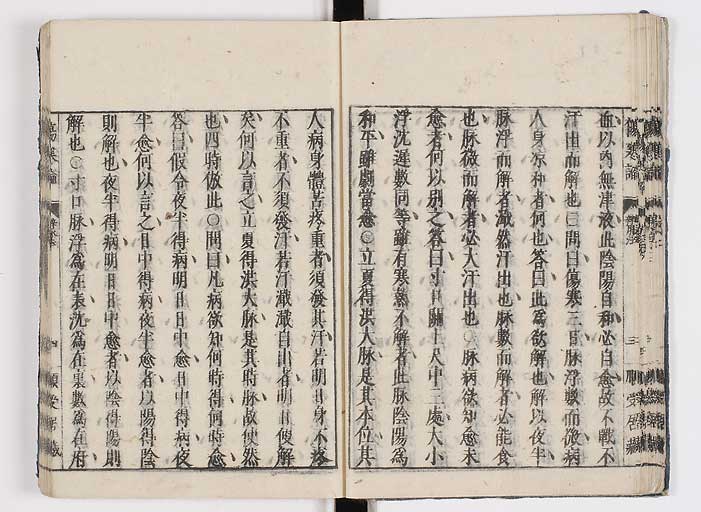 血以內無津液此陰陽自和必自愈故不戰不
汗出而解也〇問曰傷寒三日脉浮數而微病
人身凉和者何也答曰此爲欲解也解以夜半
脉浮而解者濈然汗出也脉數而解者必能食
也脉微而解者必大汗出也〇脉病欲知愈未
愈者何以別之答曰寸口關上尺中三處大小
浮沉遲數同等雖有寒熱不解者此脉陰陽爲
和平雖劇當愈〇立夏得洪大脉是其本位其
人病身體苦疼重者須發其汗若明日身不疼
不重者不須發汗若汗濈濈自出者明日便解
矣何以言之立夏得洪大脉是其時脉故使然
也四時倣此〇問曰凡病欲知何時得何時愈
答曰假令夜半得病明日日中愈日中得病夜
半愈何以言之日中得病夜半愈者以陽得陰
則解也夜半得病明日日中愈者以陰得陽則
解也〇寸口脉浮爲在表沉爲在裏數爲在府
傷寒論